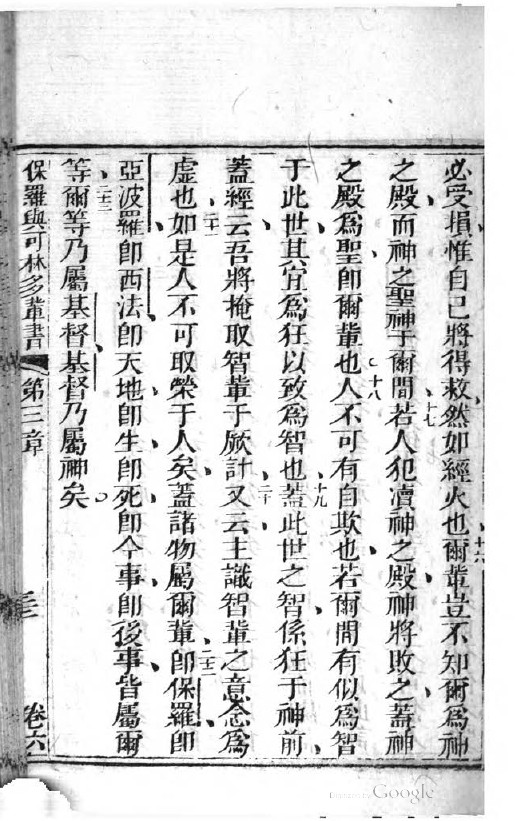 必受損惟自己將得救然如經火也十六爾輩豈不知爾為神
之殿而神之聖神于爾間十七若人犯瀆神之殿神將敗之蓋神
之殿為聖即爾輩也十八人不可有自欺也若爾間有似為智
于此世其宜為狂以致為智也十九蓋此世之智係狂于神前
蓋經云吾將掩取智輩于厥計二十又云主識智輩之意念為
虛也二十一如是人不可取榮于人矣蓋諸物屬爾輩二十二即保羅即
亞波羅即西法即天地即生即死即今事即後事皆屬爾
等二十三爾等乃屬基督基督乃屬神矣
保羅與可林多輩書 第三章 三 卷六
Digitized by Google